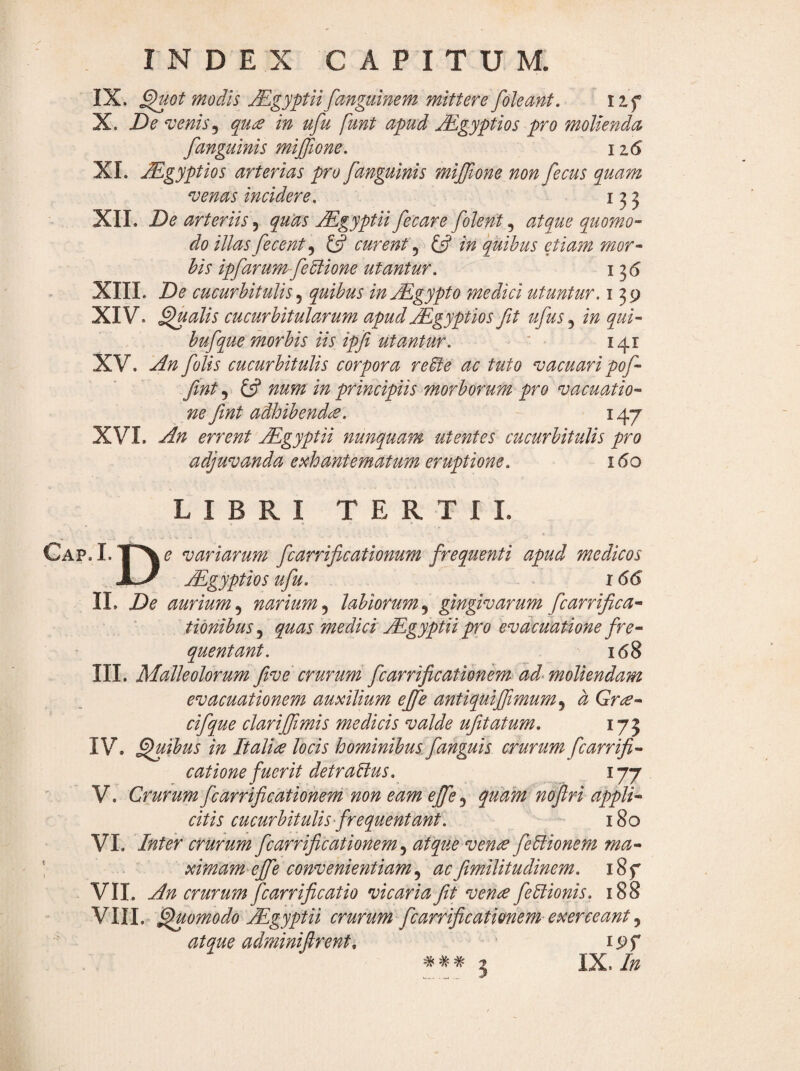 INDEX CAPITUM.
IX. Quot modis Ægyptii ſanguinem mittere ſoleant. 125
X. De venis, quæ in uſu ſunt apud Ægyptios pro molienda
ſanguinis miſſione. 126
XI. Ægyptios arterias pro ſanguinis miſſione non ſecus quam
venas incidere. 133
XII. De arteriis, quas Ægyptii ſecare ſolent, atque quomo-
do illas ſecent, & curent, & in quibus etiam mor-
bis ipſarum ſectione utantur. 136
XIII. De cucurbitulis, quibus in Ægypto medici utuntur. 139
XIV. Qualis cucurbitularum apud Ægyptios ſit uſus, in qui-
buſque morbis iis ipſi utantur. 141
XV. An ſolis cucurbitulis corpora recte ac tuto vacuari poſ-
ſint, & num in principiis morborum pro vacuatio-
ne ſint adhibendæ. 147
XVI. An errent Ægyptii nunquam utentes cucurbitulis pro
adjuvanda exhantematum eruptione. 160
LIBRI TERTII.
CAP. I. De variarum ſcarrificationum frequenti apud medicos
Ægyptios uſu. 166
II. De aurium, narium, labiorum, gingivarum ſcarrifica-
tionibus, quas medici Ægyptii pro evacuatione fre-
quentant. 168
III. Malleolorum ſive crurum ſcarrificationem ad moliendam
evacuationem auxilium eſſe antiquiſſimum, à Græ-
ciſque clariſſimis medicis valde uſitatum. 173
IV. Quibus in Italiæ locis hominibus ſanguis crurum ſcarrifi-
catione fuerit detractus. 177
V. Crurum ſcarrificationem non eam eſſe, quam noſtri appli-
citis cucurbitulis frequentant. 180
VI. Inter crurum ſcarrificationem, atque venæ ſectionem ma-
ximam eſſe convenientiam, ac ſimilitudinem. 185
VII. An crurum ſcarrificatio vicaria ſit venæ ſectionis. 188
VIII. Quomodo Ægyptii crurum ſcarrificationem exerceant,
atque adminiſtrent. 195
*** 3 IX. In